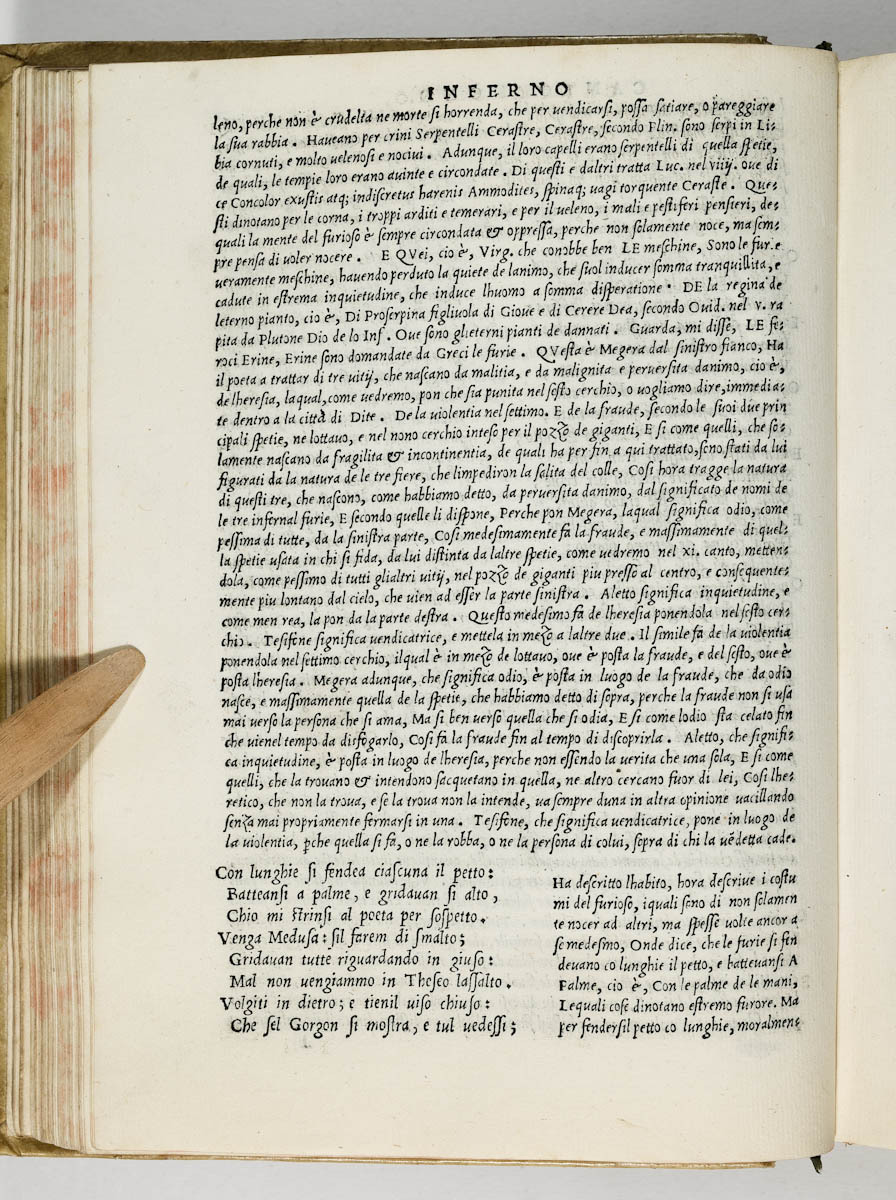 INFERNO
leno, perche non è crudelta ne morte si horrenda, che per vendicarsi, possa satiare, o pareggiare
la sua rabbia. Haueano per crini Serpentelli Ceraſtre, Ceraſtre, secondo Plin. sono serpi in Li-
bia cornuti, e molto uelenosi e nociui. Adunque, il loro capelli erano serpentelli di quella spetie,
de quali, le tempie loro erano auinte e circondate. Di questi e daltri tratta Luc. nel viiij. oue di
ce Concolor exustis atq; indiscretus harenis Ammodites, spinaq; uagi torquente Ceraste. Que-
sti dinotano per le corna, i troppi arditi e temerari, e per il ueleno, i mali e pestiferi pensieri, de-
quali la mente del furioso è sempre circondata & oppressa, perche non solamente noce, ma sem-
pre pensa di uoler nocere. E QVei, cio è, Virg. che conobbe ben LE meschine, Sono le furie
ueramente meschine, hauendo perduto la quiete de lanimo, che suol inducer somma tranquillita, e
cadute in estrema inquietudine, che induce lhuomo a somma disperatione. DE la regina de
leterno pianto, cio è, Di Proserpina figliuola di Gioue e di Cerere Dea, secondo Ouid. nel v. ra
pita da Plutone Dio de lo Inf. Oue sono glieterni pianti de dannati. Guarda, mi disse, LE fe-
roci Erine, Erine sono domandate da Greci le furie. QVesta è Megera dal sinistro fianco, Ha
il poeta a trattar di tre uitij, che nascano da malitia, e da malignita e peruersita danimo, cio è,
de lheresia, laqual, come uedremo, pon che sia punita nel sesto cerchio, o uogliamo dire, immedia-
te dentro a la città di Dite. De la uiolentia nel settimo. E de la fraude, secondo le suoi due prin
cipali spetie, ne lottauo, e nel nono cerchio inteso per il pozzo de giganti, E si come quelli, che so-
lamente nascano da fragilita & incontinentia, de quali ha per fin a qui trattato, sono stati da lui
figurati da la natura de le tre fiere, che limpediron la salita del colle, Cosi hora tragge la natura
di questi tre, che nascono, come habbiamo detto, da peruersita danimo, dal significato de nomi de
le tre infernal furie, E secondo quelle li dispone, Perche pon Megera, laqual significa odio, come
pessima di tutte, da la sinistra parte, Cosi medesimamente fa la fraude, e massimamente di quel-
la spetie usata in chi si fida, da lui distinta da laltre spetie, come uedremo nel xi. canto, metten-
dola, come pessimo di tutti glialtri uitij, nel pozzo de giganti piu presso al centro, e consequente-
mente piu lontano dal cielo, che uien ad esser la parte sinistra. Aletto significa inquietudine, e
come men rea, la pon da la parte destra. Questo medesimo fa de lheresia ponendola nel sesto cer-
chio. Tesifone significa uendicatrice, e mettela in mezo a laltre due. Il simile fa de la uiolentia
ponendola nel settimo cerchio, ilqual è in mezo de lottauo, oue è posta la fraude, e del sesto, oue è
posta lheresia. Megera adunque, che significa odio, è posta in luogo de la fraude, che da odio
nasce, e massimamente quella de la spetie, che habbiamo detto di sopra, perche la fraude non si usa
mai uerso la persona che si ama, Ma si ben uerso quella che si odia, E si come lodio sta celato fin
che uienel tempo da disfogarlo, Cosi fa la fraude fin al tempo di discoprirla. Aletto, che signifi-
ca inquietudine, è posta in luogo de lheresia, perche non essendo la uerita che una sola, E si come
quelli, che la trouano & intendono sacquetano in quella, ne altro cercano fuor di lei, Cosi lhe-
retico, che non la troua, e se la troua non la intende, ua sempre duna in altra opinione uacillando
senza mai propriamente fermarsi in una. Tesifone, che significa uendicatrice, pone in luogo de
la uiolentia, pche quella si fa, o ne la robba, o ne la persona di colui, sopra di chi la uēdetta cade.
Con lunghie si fendea ciascuna il petto:
Batteansi a palme, e gridauan si alto,
Chio mi strinsi al poeta per sospetto.
Venga Medusa: sil farem di smalto;
Gridauan tutte riguardando in giuso:
Mal non uengiammo in Theseo lassalto.
Volgiti in dietro; e tienil uiso chiuso:
Che sel Gorgon si mostra, e tul uedessi;
Ha descritto lhabito, hora descriue i costu
mi del furioso, iquali sono di non solamen
te nocer ad altri, ma spesse uolte ancor a
se medesmo, Onde dice, che le furie si fen
deuano co lunghie il petto, e batteuansi A
Palme, cio è, Con le palme de le mani,
Lequali cose dinotano estremo furore. Ma
per fendersil petto co lunghie, moralmen-